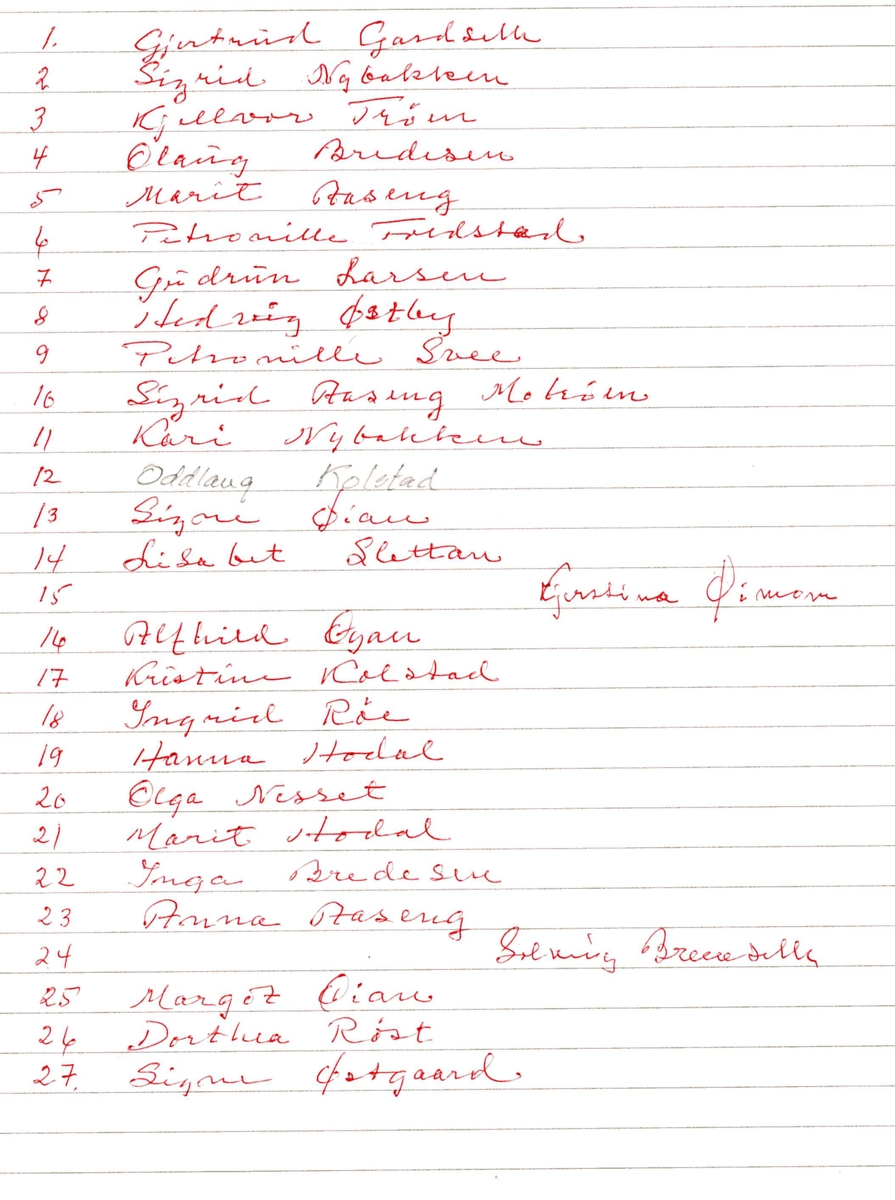 1. Gjertrud Gardselle
2 Sigrid Nybakken
3 Kjellvor Trøen
4 Olaug Bredesen
5 Marit Aaseng
6 Petronille Fredstad
7 Gudrun Larsen
8 Hedvig Østby
9 Petronille Svee
10 Sigrid Aaseng Mokrøen
11 Kari Nybakken
12 Oddlaug Kolstad
13 Signe Øian
14 Lisabet Slettan
15 Kjerstina Øimon
16 Alfhild Øyan
17 Kristine Kolstad
18 Ingrid Røe
19 Hanna Hodal
20 Olga Nesset
21 Marit Hodal
22 Inga Bredesen
23 Anna Aaseng
24 Solveig
25 Margot Øian
26 Dorthea Røst
27. Signe Østgaard